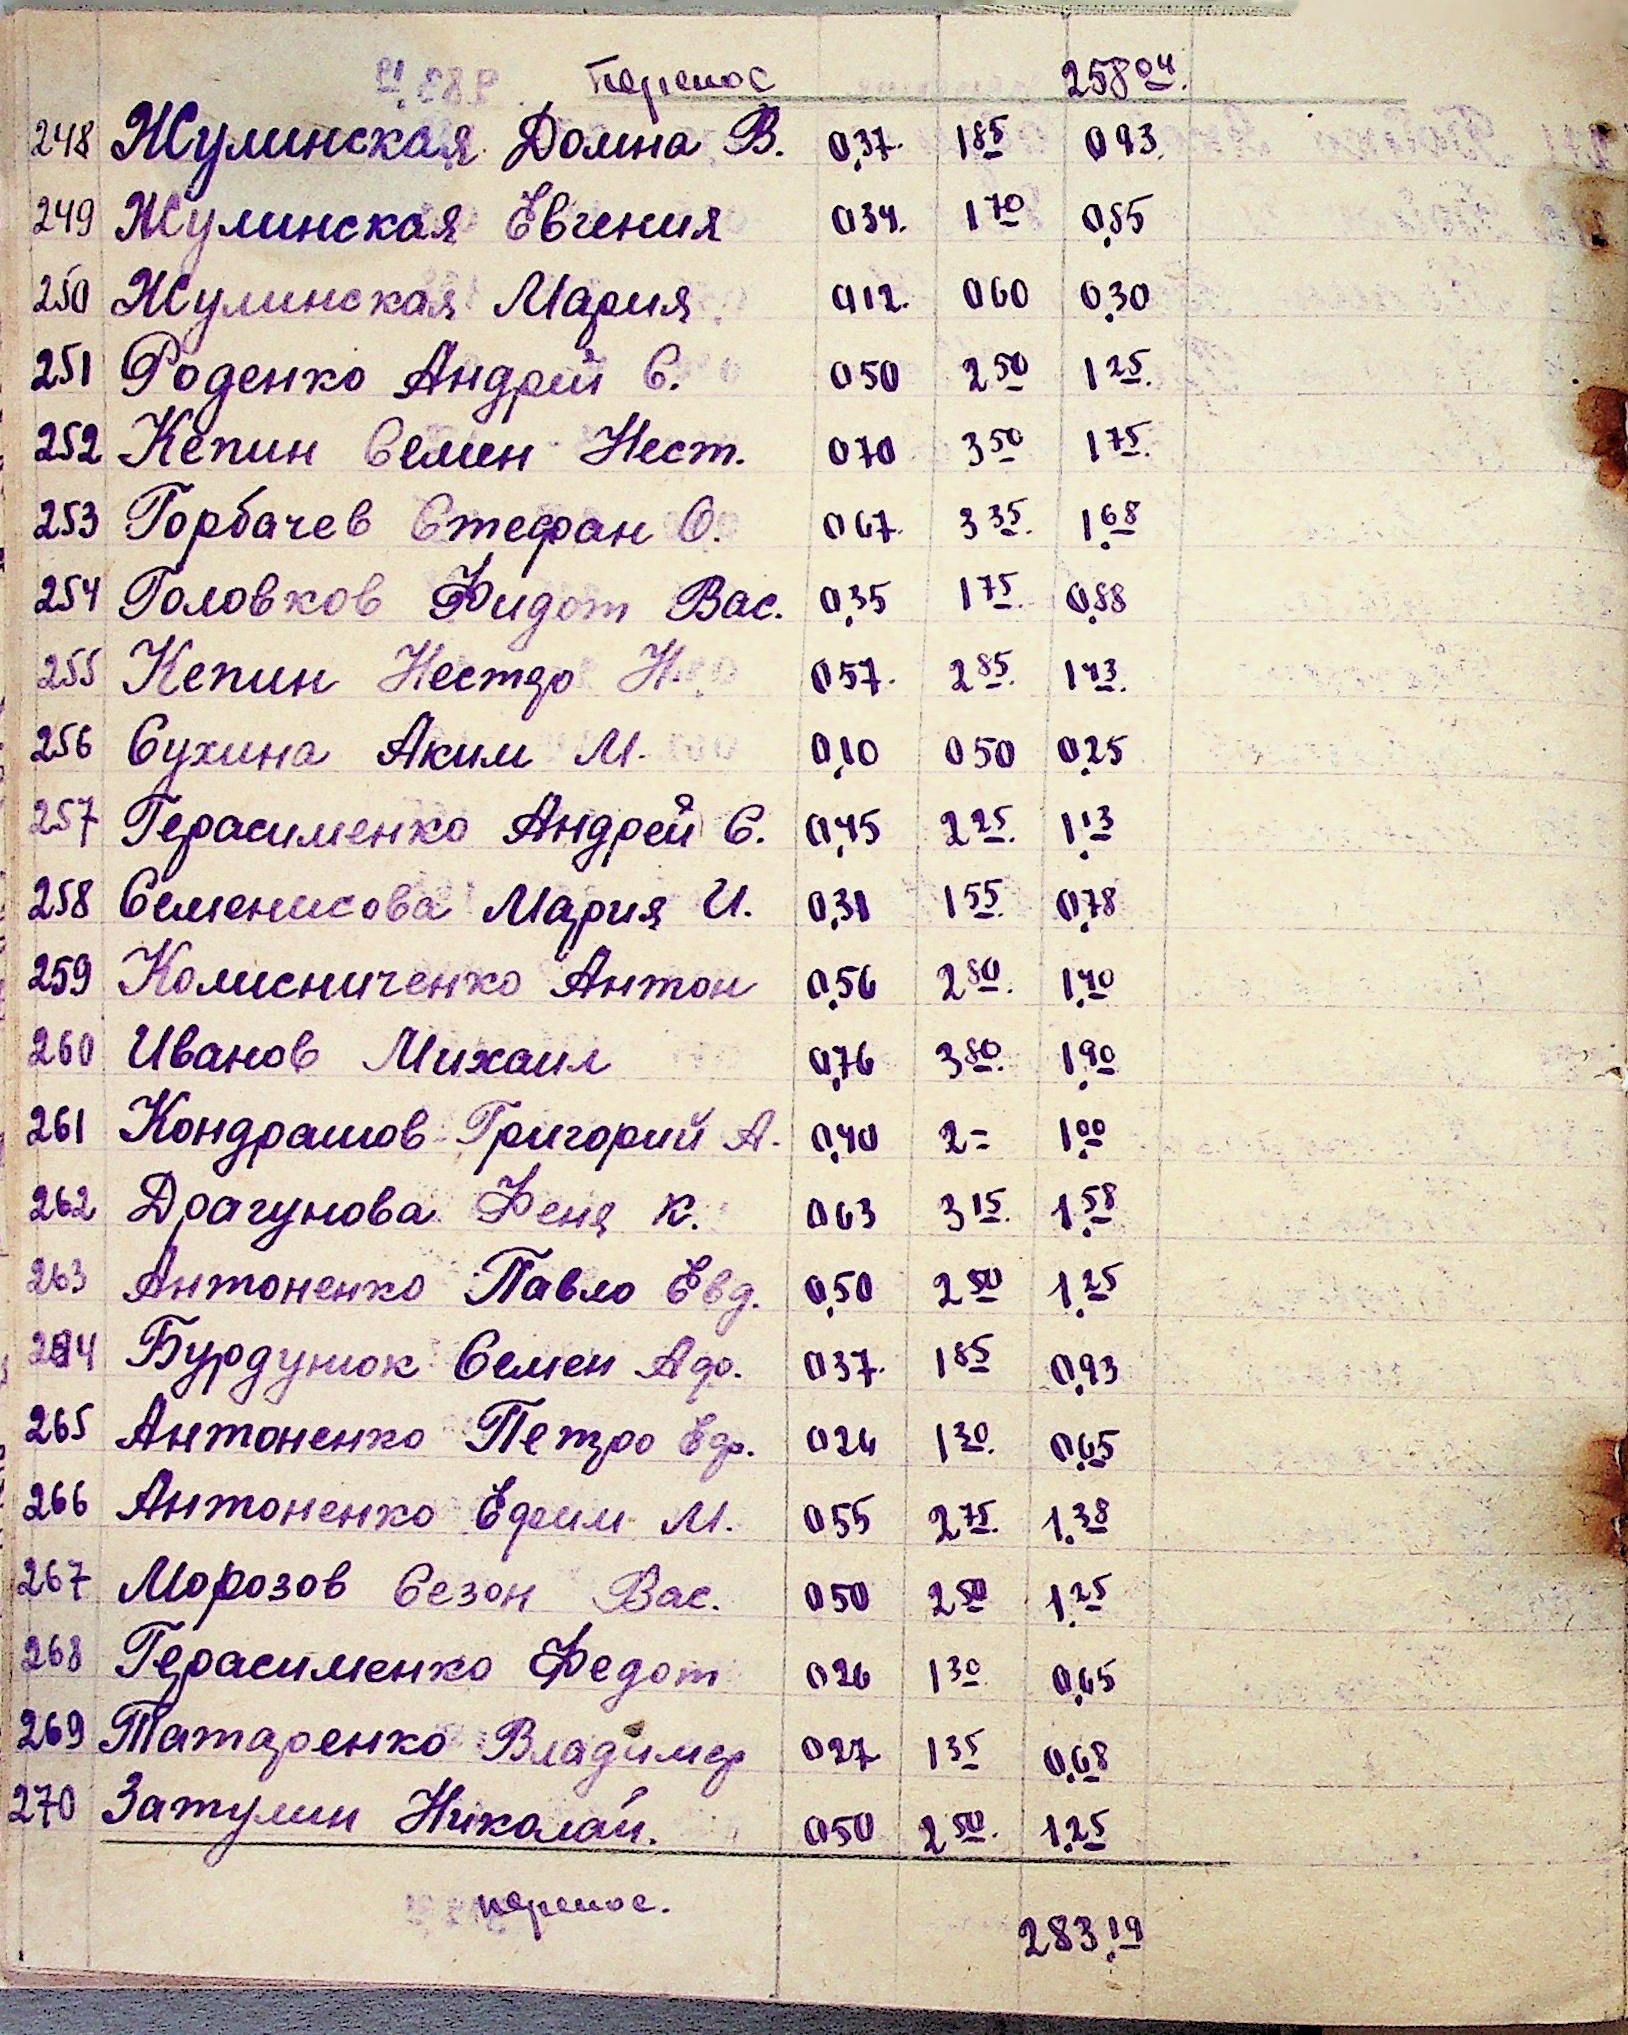 Перенос 258 04.
248 Жулинская Домна В. 0,37. 1 85 0 93.
249 Жулинская Евгения 0 34. 1 70 0,85
250 Жулинская Мария 0 12. 0 60 0,30
251 Роденко Андрей С. 0 50 2 50 1 25.
252 Кепин Семен Нест. 0 70 3 50 1 75.
253 Горбачев Стефан О. 0 67. 3 35. 1,68
254 Головков Фидот Вас. 0,35 1 75. 0,88
255 Кепин Нестро Н. 0 57. 2 85. 1 43.
256 Сухина Аким М. 0,10 0 50 0,25
257 Герасименко Андрей С. 0,45 2 25. 1,13
258 Семенисова Мария И. 0,31 1 55. 0,78
259 Колисниченко Антон 0,56 2 80. 1,40
260 Иванов Михаил 0,76 3 80. 1,90
261 Кондрашов Григорий А. 0,40 2 = 1 00
262 Драгунова Феня К. 0 63 3 15. 1,58
263 Антоненко Павло Евд. 0,50 2 50 1,25
264 Бурдунюк Семен Аф. 0 37. 1 85 0,93
265 Антоненко Петро Еф. 0 26 1 30. 0,65
266 Антоненко Ефим М. 0 55 2 75. 1,38
267 Морозов Сезон Вас. 0 50 2 50 1,25
268 Герасименко Федот 0 26 1 30 0,65
269 Татаренко Владимер 0 27 1 35 0,68
270 Затулин Николай. 0 50 2 50. 1,25
перенос. 283,19